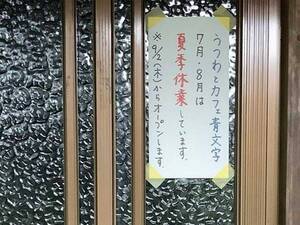 うつわとカフェ青文字
7月・8月は
夏季休業しています。
※9/2(木)からオープンします。